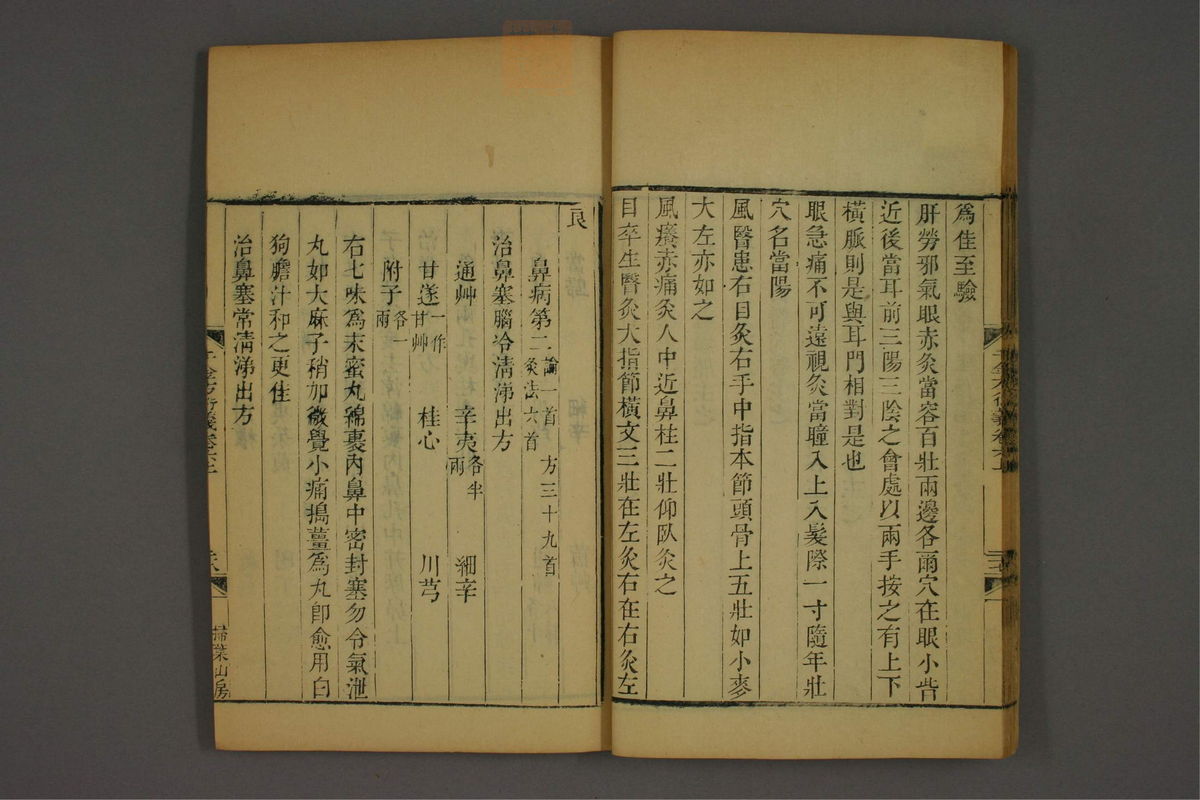 爲佳至驗
肝勞邪氣眼赤灸當容百壯兩邊各爾穴在眼小眥
近後當耳前三陽三陰之會處以兩手按之有上下
橫脈則是與耳門相對是也
眼急痛不可遠視灸當瞳入上入髮際一寸隨年壯
穴名當陽
風醫患右目灸右手中指本節頭骨上五壯如小麥
大左亦如之
風癢赤痛灸人中近鼻柱二壯仰臥灸之
目卒生醫灸大指節橫文三壯在左灸右在右灸左
良
鼻病第二 論一首 方三十九首 灸法六首
治鼻塞腦冷清涕出方
通艸 辛夷各半兩 細辛
甘遂一作甘艸 桂心 川芎
附子各一兩
右七味爲末蜜丸綿裹內鼻中密封塞勿令氣泄
丸如大麻子稍加微覺小痛搗薑爲丸卽愈用白
狗膽汁和之更佳
治鼻塞常清涕出方
千金方衍義卷六上
掃葉山房